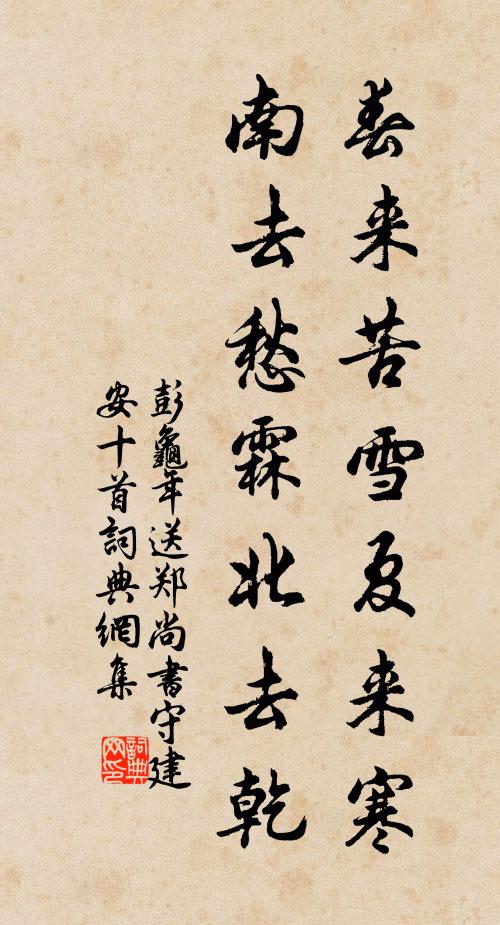 春来苦雪夏来寒
南去愁霖北去乾
彭龜年送郑尚書守建
安十首詞典網集
詞典
网印